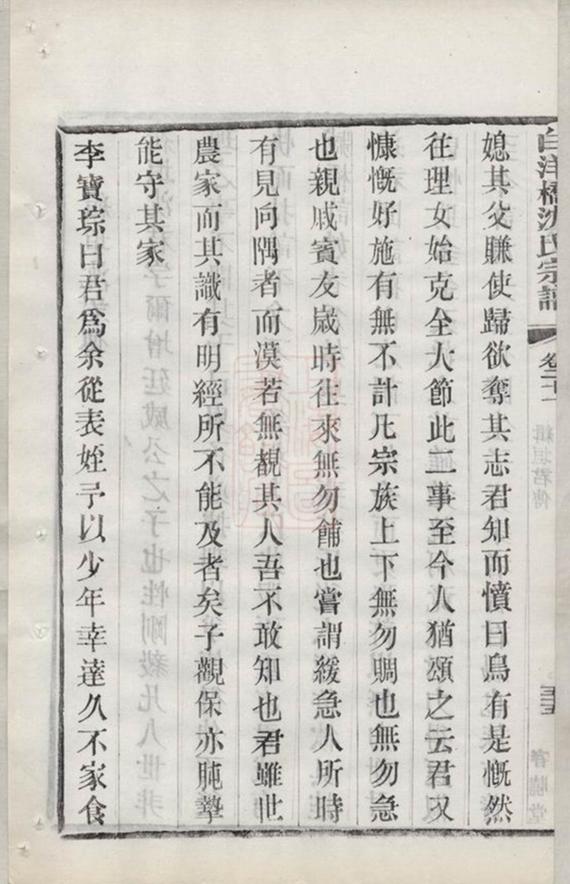 白洋橋沈氏宗譜
卷二十一
媳其父賺使歸欲奪其志君知而憤曰烏有是慨然
往理女始克全大節此一事至今人猶頌之云君又
慷慨好施有無不計凡宗族上下無勿賙也無勿急
也親戚賓友歲時往來無勿餔也嘗謂緩急人所時
有見向隅者而漠若無覩其人吾不敢知也君雖世
農家而其識有明經所不能及者矣子觀保亦肫摯
能守其家
李寶琮曰君爲余從表姪予以少年幸達久不家食